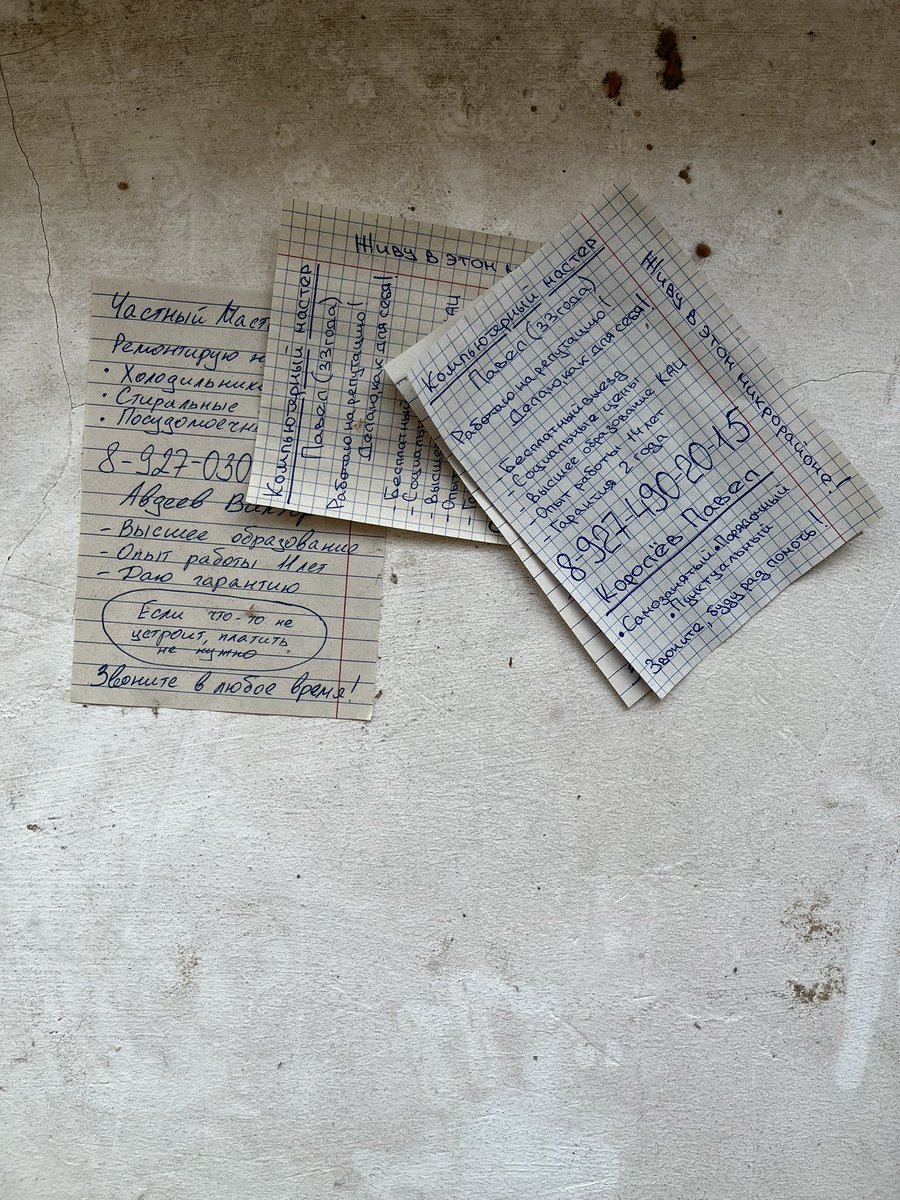 Частный Маст
Ремонтирую н
• Холодильники
• Стиральные
• Посудомоечн
8-927-030
Авдеев Виктор
- Высшее образование
- Опыт работы 11 лет
- Даю гарантию
Если что-то не
устроит, платить
не нужно
Звоните в любое время!
Живу в этом
Компьютерный мастер
Павел (33 года)
Работаю на репутацию!
Делаю, как для себя!
- Бесплатный
- Социальн
- Высшее
- Опыт
КАИ
Живу в этом микрорайоне!
Компьютерный мастер
Павел (33 года)
Работаю на репутацию!
Делаю, как для себя!
- Бесплатный выезд
- Социальные цены
- Высшее образование КАИ
- Опыт работы 14 лет
- Гарантия 2 года
8-927-490-20-15
Королёв Павел
• Самозанятый • Порядочный
• Пунктуальный
Звоните, буду рад помочь!